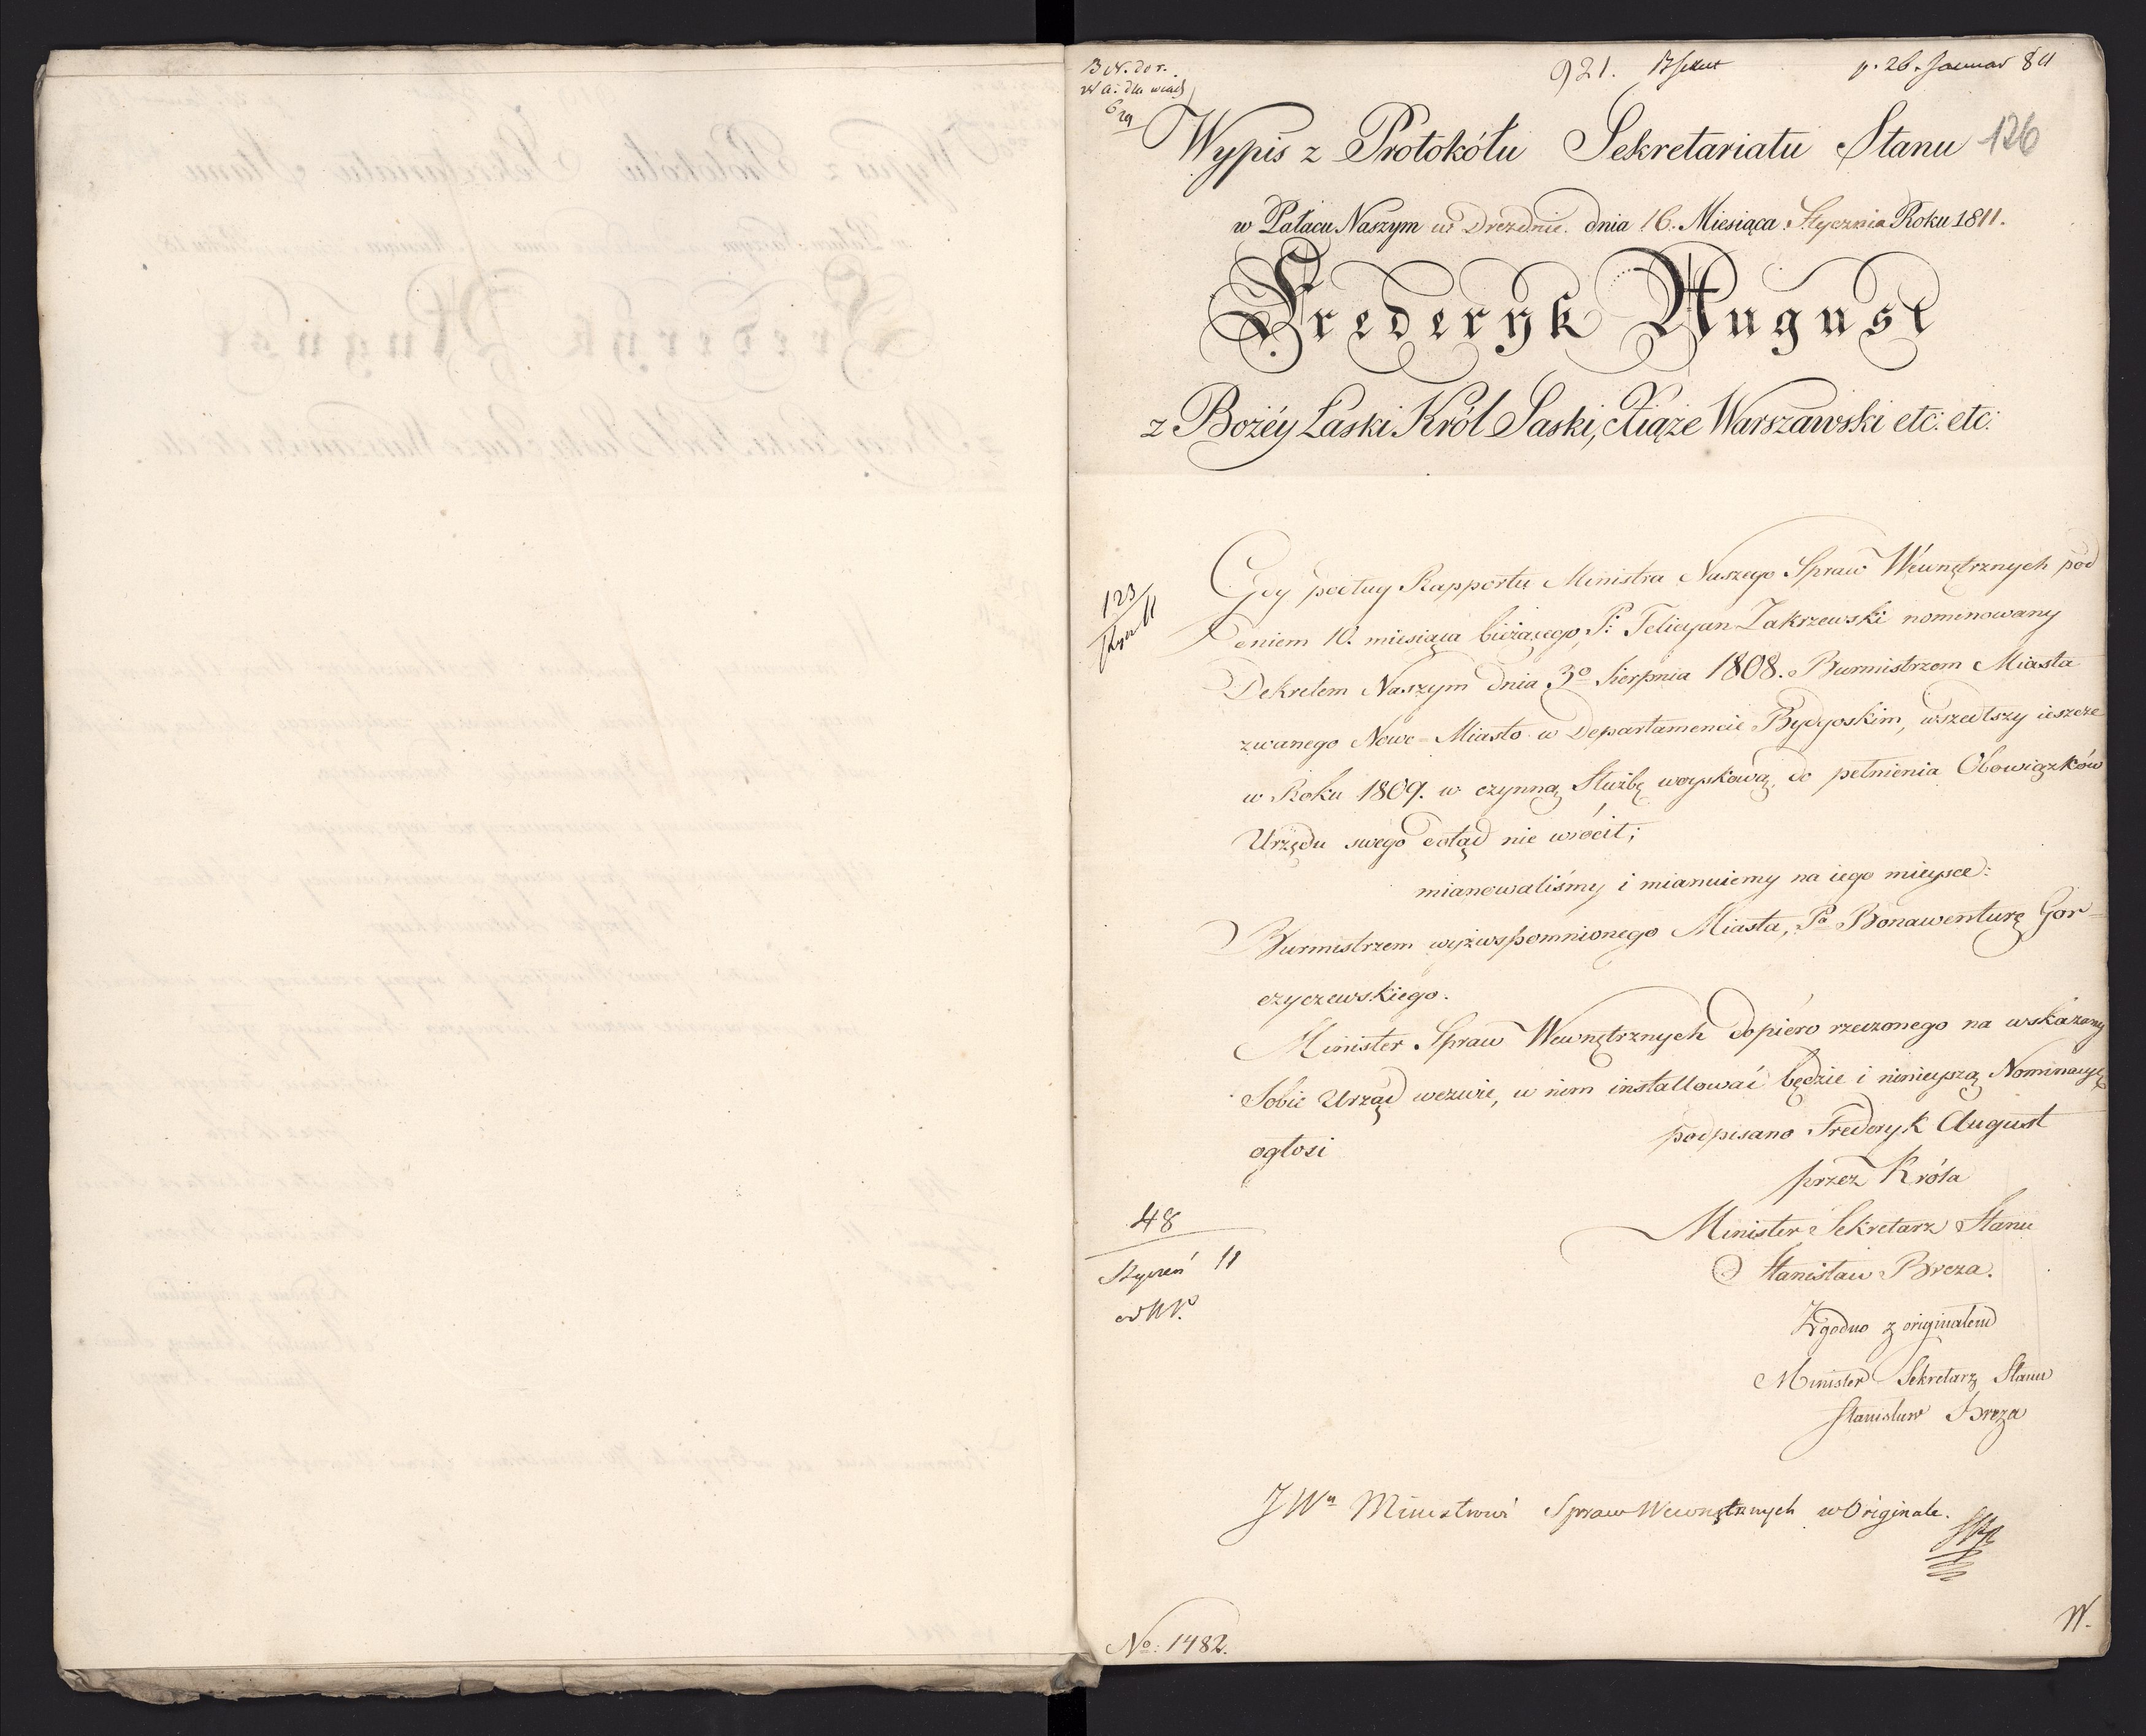 921.
p. 26. Januar 811
Wypis z Protokółu Sekretariatu Stanu 126
w Pałacu Naszym w Dreznie dnia 16. Miesiąca Stycznia Roku 1811.
Frederyk August
z Bożéy Łaski Król Saski, Xiąże Warszawski etc: etc:
123
Gdy podług Rapportu Ministra Naszego Spraw Wewnętrznych pod
dniem 10. miesiąca bieżącego, P. Felicyan Zakrzewski nominowany
Dekretem Naszym dnia 3o Sierpnia 1808. Burmistrzem Miasta
zwanego Nowe-Miasto w Departamencie Bydgoskim, wszedłszy ieszcze
w Roku 1809. w czynną Służbę woyskową, do pełnienia Obowiązków
Urzędu swego dotąd nie wrócił;
mianowaliśmy i mianuiemy na iego mieysce:
Burmistrzem wyżwspomnionego Miasta, Pa Bonawenturę Gor=
czyczewskiego.
Minister Spraw Wewnętrznych dopiero rzeczonego na wskazany
Sobie Urząd wezwie, w nim installować będzie i ninieyszą Nominacyę
ogłosi
podpisano Frederyk August
przez Króla
48
Minister Sekretarz Stanu
Styczeń 11
Stanisław Breza.
Zgodno z originałem
Minister Sekretarz Stanu
Stanisław Breza
JWu Ministrowi Spraw Wewnętrznych w Originale.
W.
No: 1482.